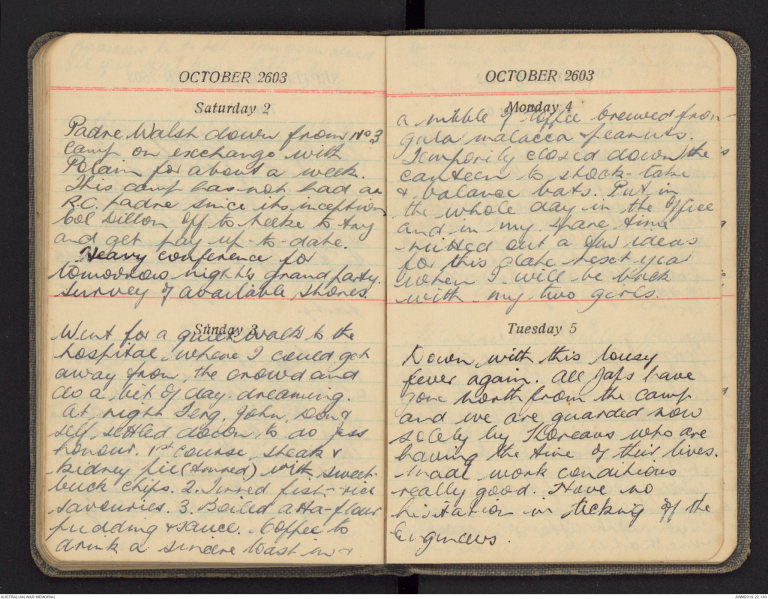 OCTOBER 2603
Saturday 2
Padre Walsh down from No 3
camp on exchange with
Polain for about a week.
This camp has not had an
R.C. padre since its inception
Col Dillon off to Neeke to try
and get pay up-to-date.
Heavy conference for
tomorrows night's grand party.
Survey of available stores.
Sunday 3
Went for a quick walk to the
hospital, where I could get
away from the crowd and
do a bit of day dreaming.
At night Ferg, John, Don &
self settled down to do Jess
honour. 1st course, steak &
kidney pie (tinned) with sweet
buck chips. 2. Tinned fish-rice
savouries. 3. Boiled atta-flour
pudding & sauce. Coffee to
drink a sincere toast in &
OCTOBER 2603
Monday 4
a nibble of toffee brewed from
gula malacca & peanuts.
Temporily closed down the
canteen to stock-take
& balance bats. Put in
the whole day in the office
and in my spare time
nutted out a few ideas
for this date next year
when I will be back
with my two girls.
Tuesday 5
Down with this lousy
fever again. All Japs have
gone North from the camp
and we are guarded now
solely by Koreans who are
having the time of their lives.
Made work conditions
really good. Have no
hesitation in ticking off the
Engineers.
AUSTRALIAN WAR MEMORIAL